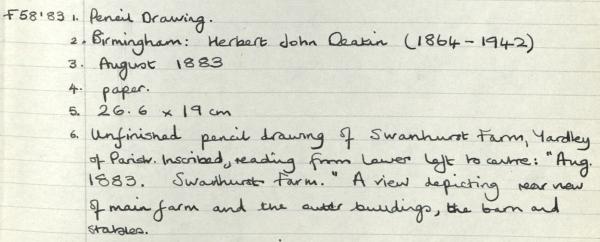 F58'83 1. Pencil Drawing.
2. Birmingham: Herbert John Deakin (1864-1942)
3. August 1883
4. paper.
5. 26.6 x 19 cm
6. Unfinished pencil drawing of Swanhurst Farm, Yardley
of Parish. Inscribed, reading from lower left to centre: "Aug.
1883. Swanhurst Farm." A view depicting rear view
of main farm and the outer buildings, the barn and
stables.